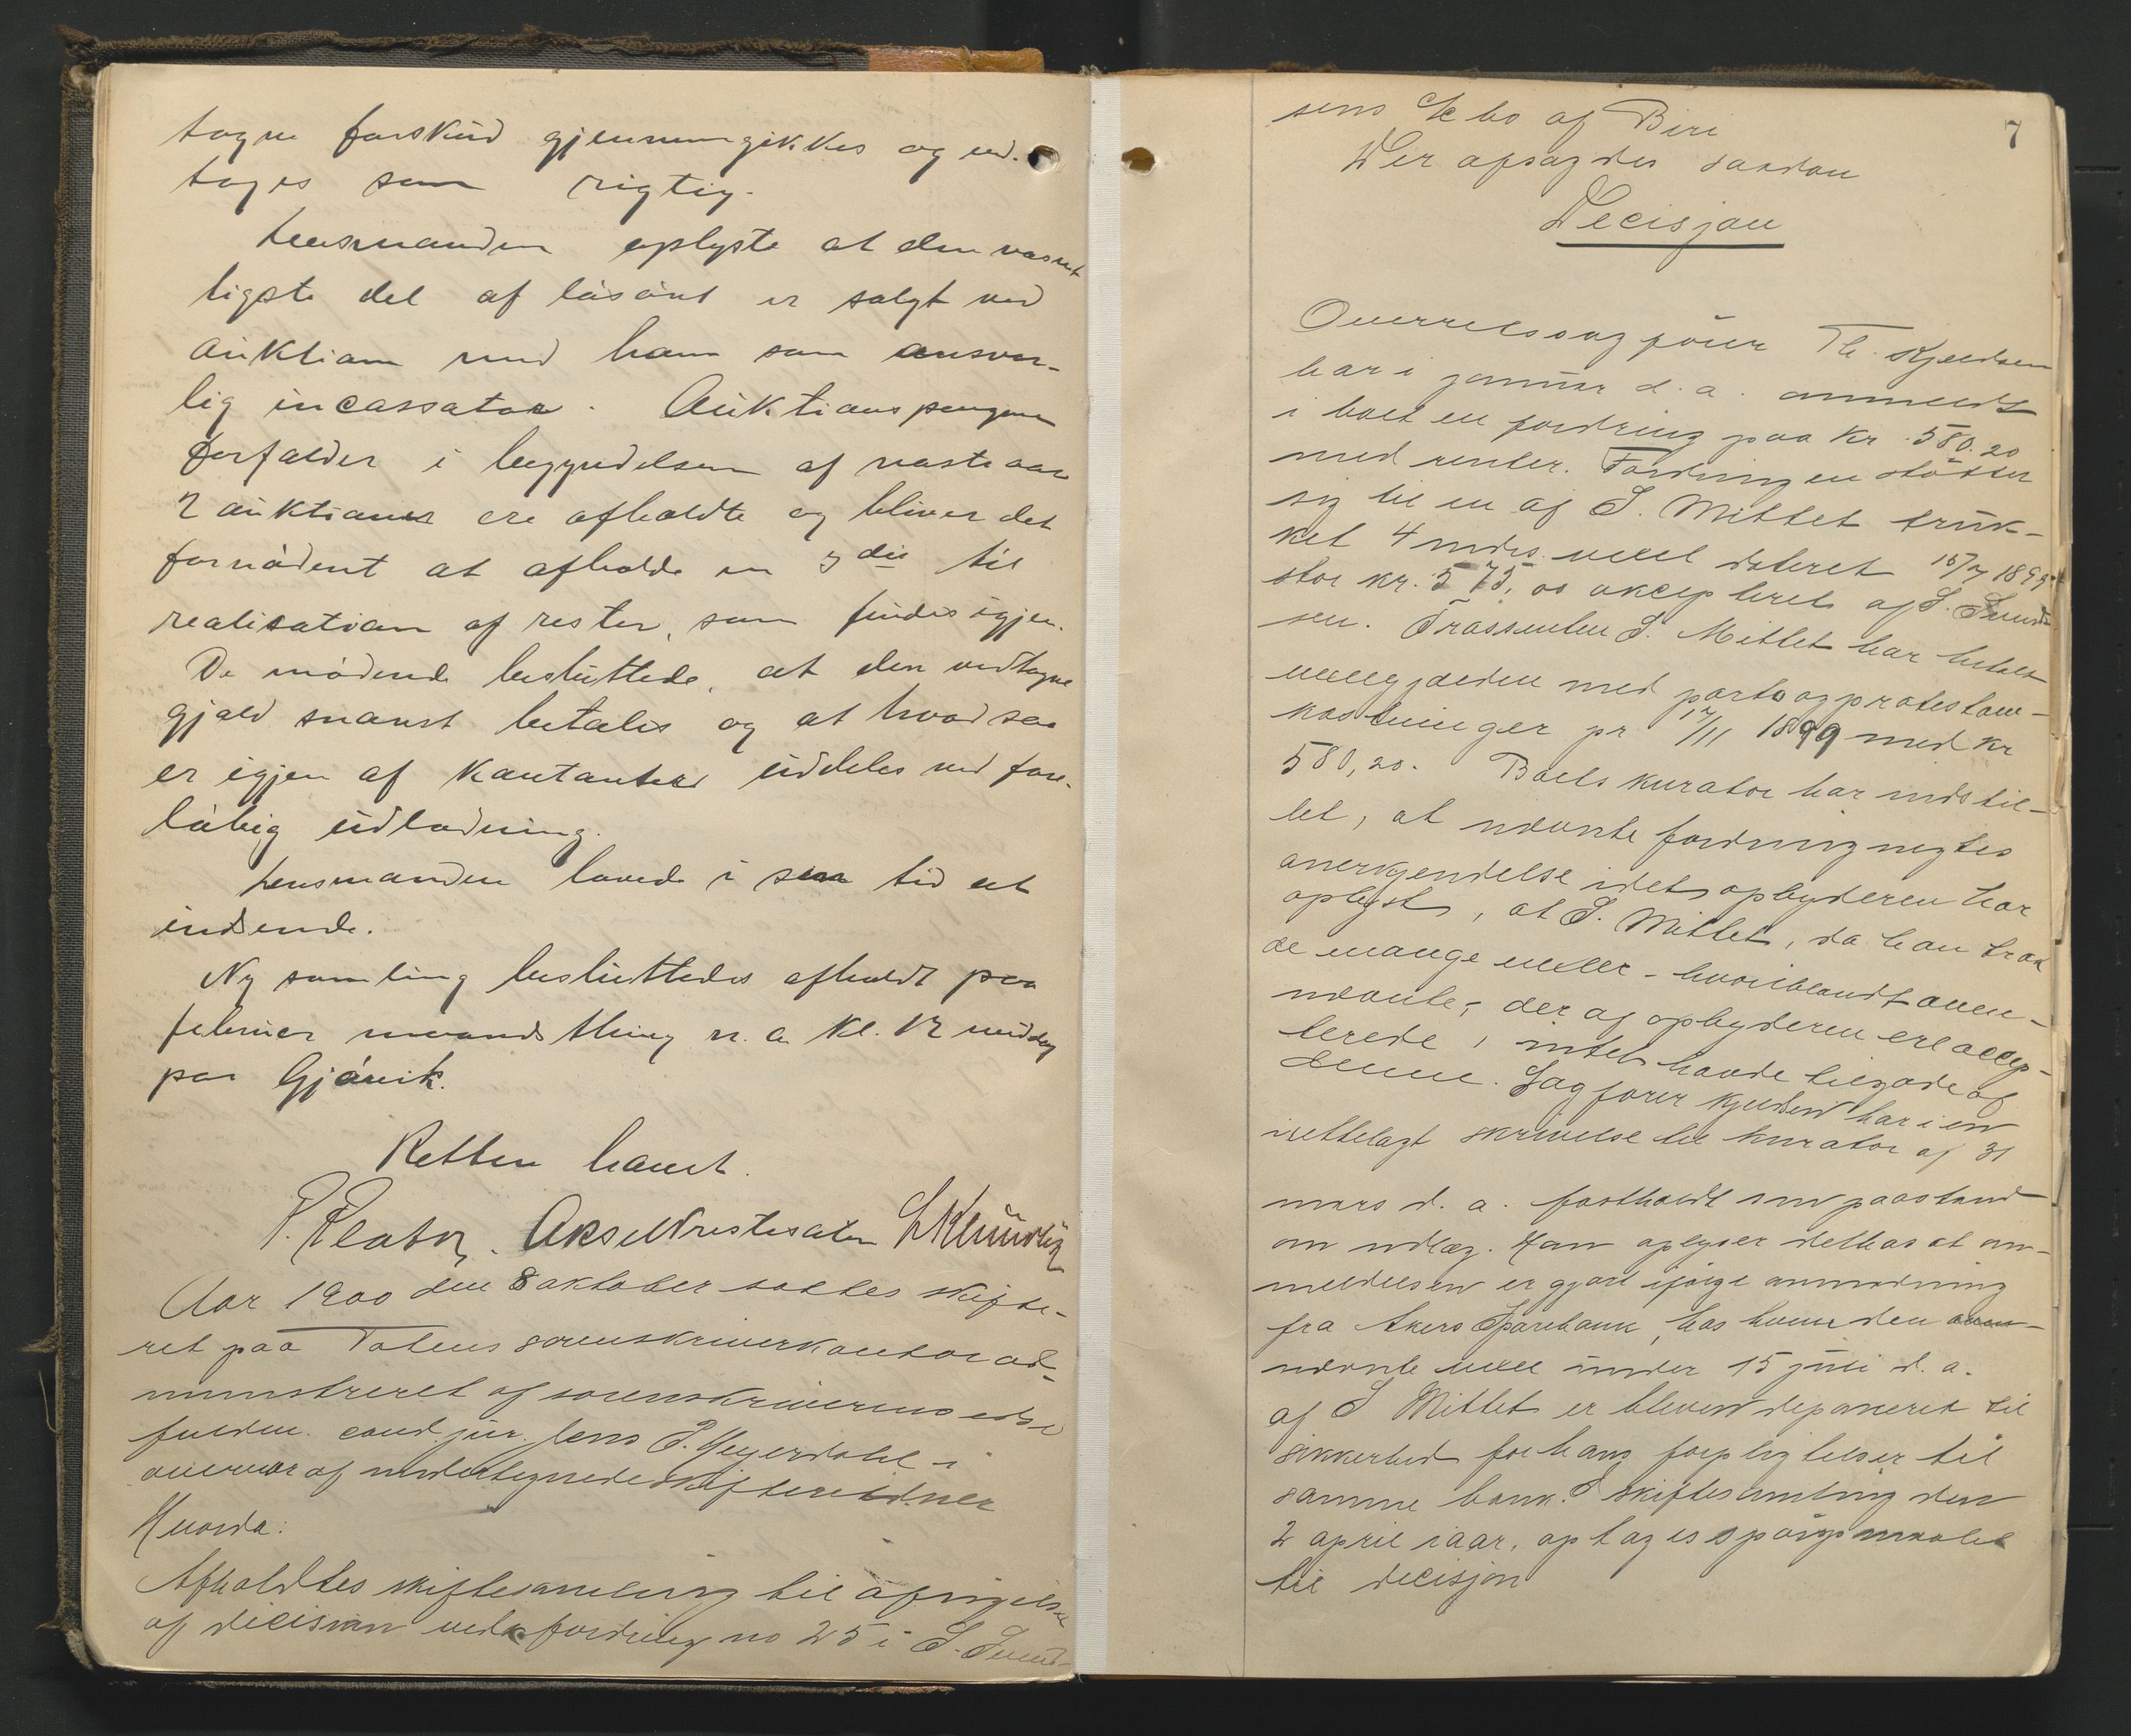 tagne forskud gjennemgikkes og ved-
toges som rigtig.
Lensmanden oplyste at den væsent
ligste del af løsøret er solgt ved
auktion med ham som ansvar-
lig incassator. Auktionspengene
forfalder i begyndelsen af næste aar
2 auktioner ere afholdte og bliver det
fornødent at afholde en 3die til
realisation af rester, som findes igjen.
De mødende besluttede, at den vedtagne
gjæld snarest betales og at hvad saa
er igjen af kontanter uddeles ved fore-
løbig udlodning.
Lensmanden lovede i sin tid at
indsende.
Ny samling besluttedes afholdt paa
februar maanedsthing n. a. kl. 12 middag
paa Gjøvik.
Retten hævet.
Aar 1900 den 8 oktober sattes skifte-
ret paa Totens sorenskriverkontor ad-
ministreret af sorenskriverens eds-
fuldm. cand. jur. Jens P. Heyerdahl i
overvær af undertegnede skifteretsvidner
Hvorda:
Afholdtes skiftesamling til afsigelse
af decision vedk fordring no 25 i S. Sund-
7
sens bo af Biri
Der afsagdes saadan
Decisjon
Overretssagfører Th. Kjeldsen
har i januar d. a. anmeldt
i boet en fordring paa kr. 580.20
med renter. Fordringen støtter
sig til en af S. Mittet truk-
ket 4 mdrs. vexel dateret 15/7 1899
stor kr. 575,00 akcepteret af S. Sund-
sen. Trassenten S. Mittet har betalt
vexelgjælden med porto og protestom-
kostninger pr 17/11 1899 med kr
580,20. Boets kurator har indstil-
let, at nævnte fordring negtes
anerkjendelse idet opbyderen har
oplyst, at S. Mittet, da han trak
de mange vexler - hvoriblandt oven-
nævnte, - der af opbyderen ere accep-
terede, intet havde tilgode af
denne. Sagfører Kjeldsen har i en
irettelagt skrivelse til kurator af 31
mars d. a. fastholdt sin paastand
om udlæg. Han oplyser derhos at an-
meldelsen er gjort ifølge anmodning
fra Akers Sparebank, hos hvem den oven-
nævnte vexel under 15 juli d. a.
af S Mittet er bleven deponeret til
sikkerhed for hans forpligtelser til
samme bank. I skiftesamling den
2 april iaar, optoges spørgsmaalet
til decisjon